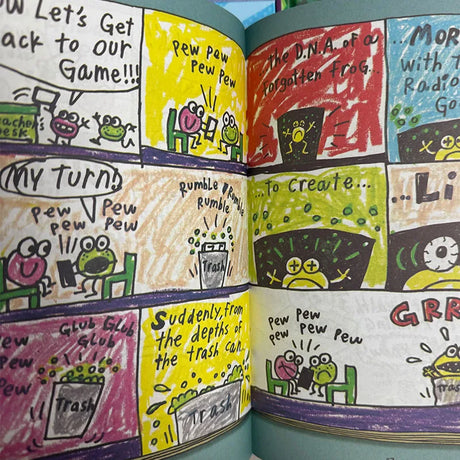 Let's Get
Back to our
Game!!!
Teacher's
Desk
PEW PEW
PEW PEW
MY TURN!
PEW PEW
PEW PEW
Rumble Rumble
Rumble
Trash
PEW
PEW
PEW
GLUB GLUB
GLUB
Trash
Suddenly, from
the depths of
the trash can...
TRASH
...the D.N.A. of a
forgotten frog...
...MOR
with T
Radio
Go
...to Create...
...Li
PEW PEW
PEW PEW PEW
GRR
Trash